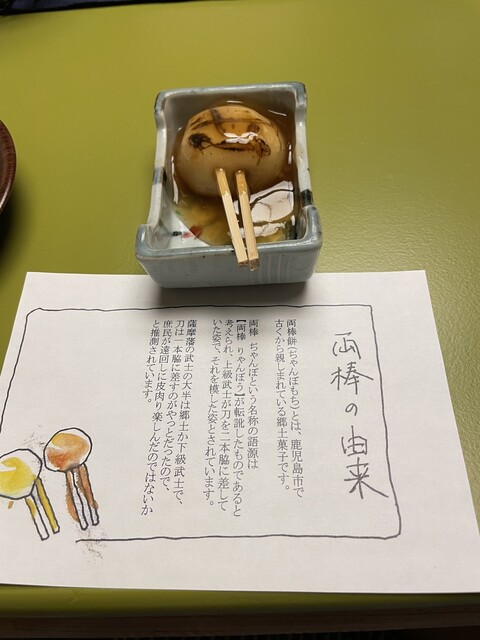 両棒の由来
両棒餅(ぢゃんぼもち)とは、鹿児島市で
古くから親しまれている郷土菓子です。
両棒 ぢゃんぼという名称の語源は
【両棒 りゃんぼう】が転訛したものであると
考えられ、上級武士が刀を二本脇に差して
いた姿で、それを模した姿とされています。
薩摩藩の武士の大半は郷士か下級武士で、
刀は一本脇に差すのがやっとだったので、
庶民が遠回しに皮肉り楽しんだのではないか
と推測されています。